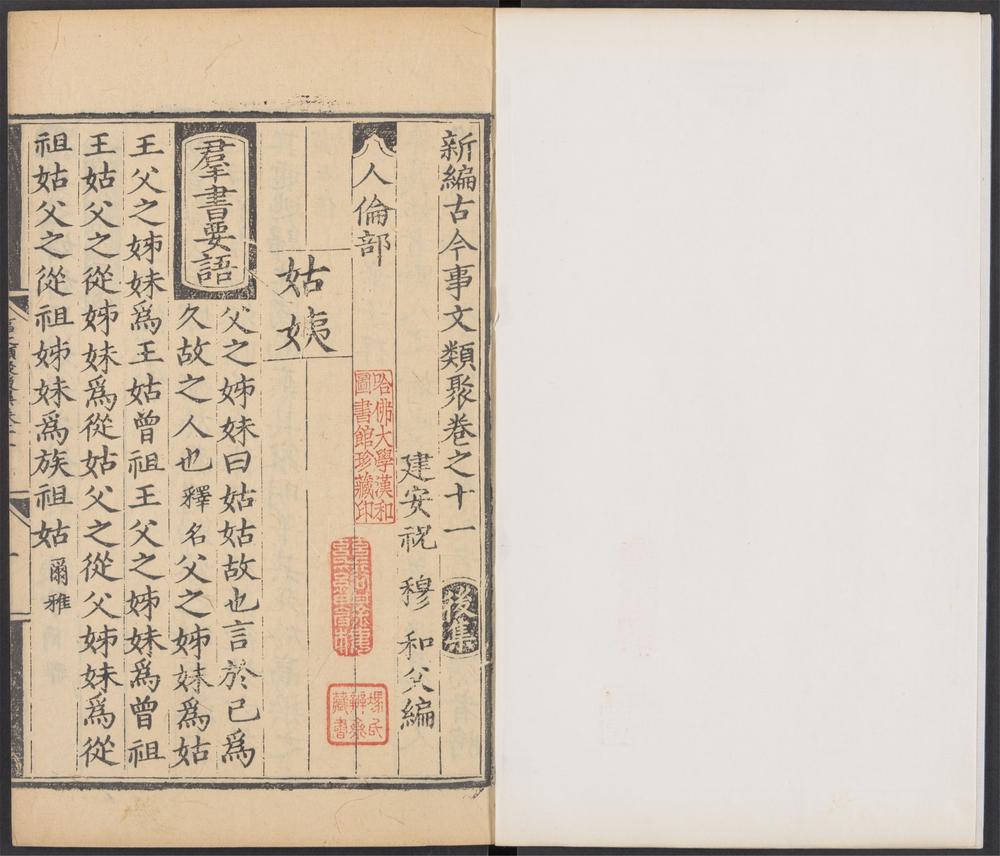 新編古今事文類聚卷之十一 後集
建安祝 穆 和父編
人倫部
哈佛大學漢和
圖書館珍藏印
姑姨
羣書要語
父之姊妹曰姑姑故也言於己爲
久故之人也釋名父之姊妹爲姑
王父之姊妹爲王姑曾祖王父之姊妹爲曾祖
王姑父之從姊妹爲從姑父之從父姊妹爲從
祖姑父之從祖姊妹爲族祖姑爾雅